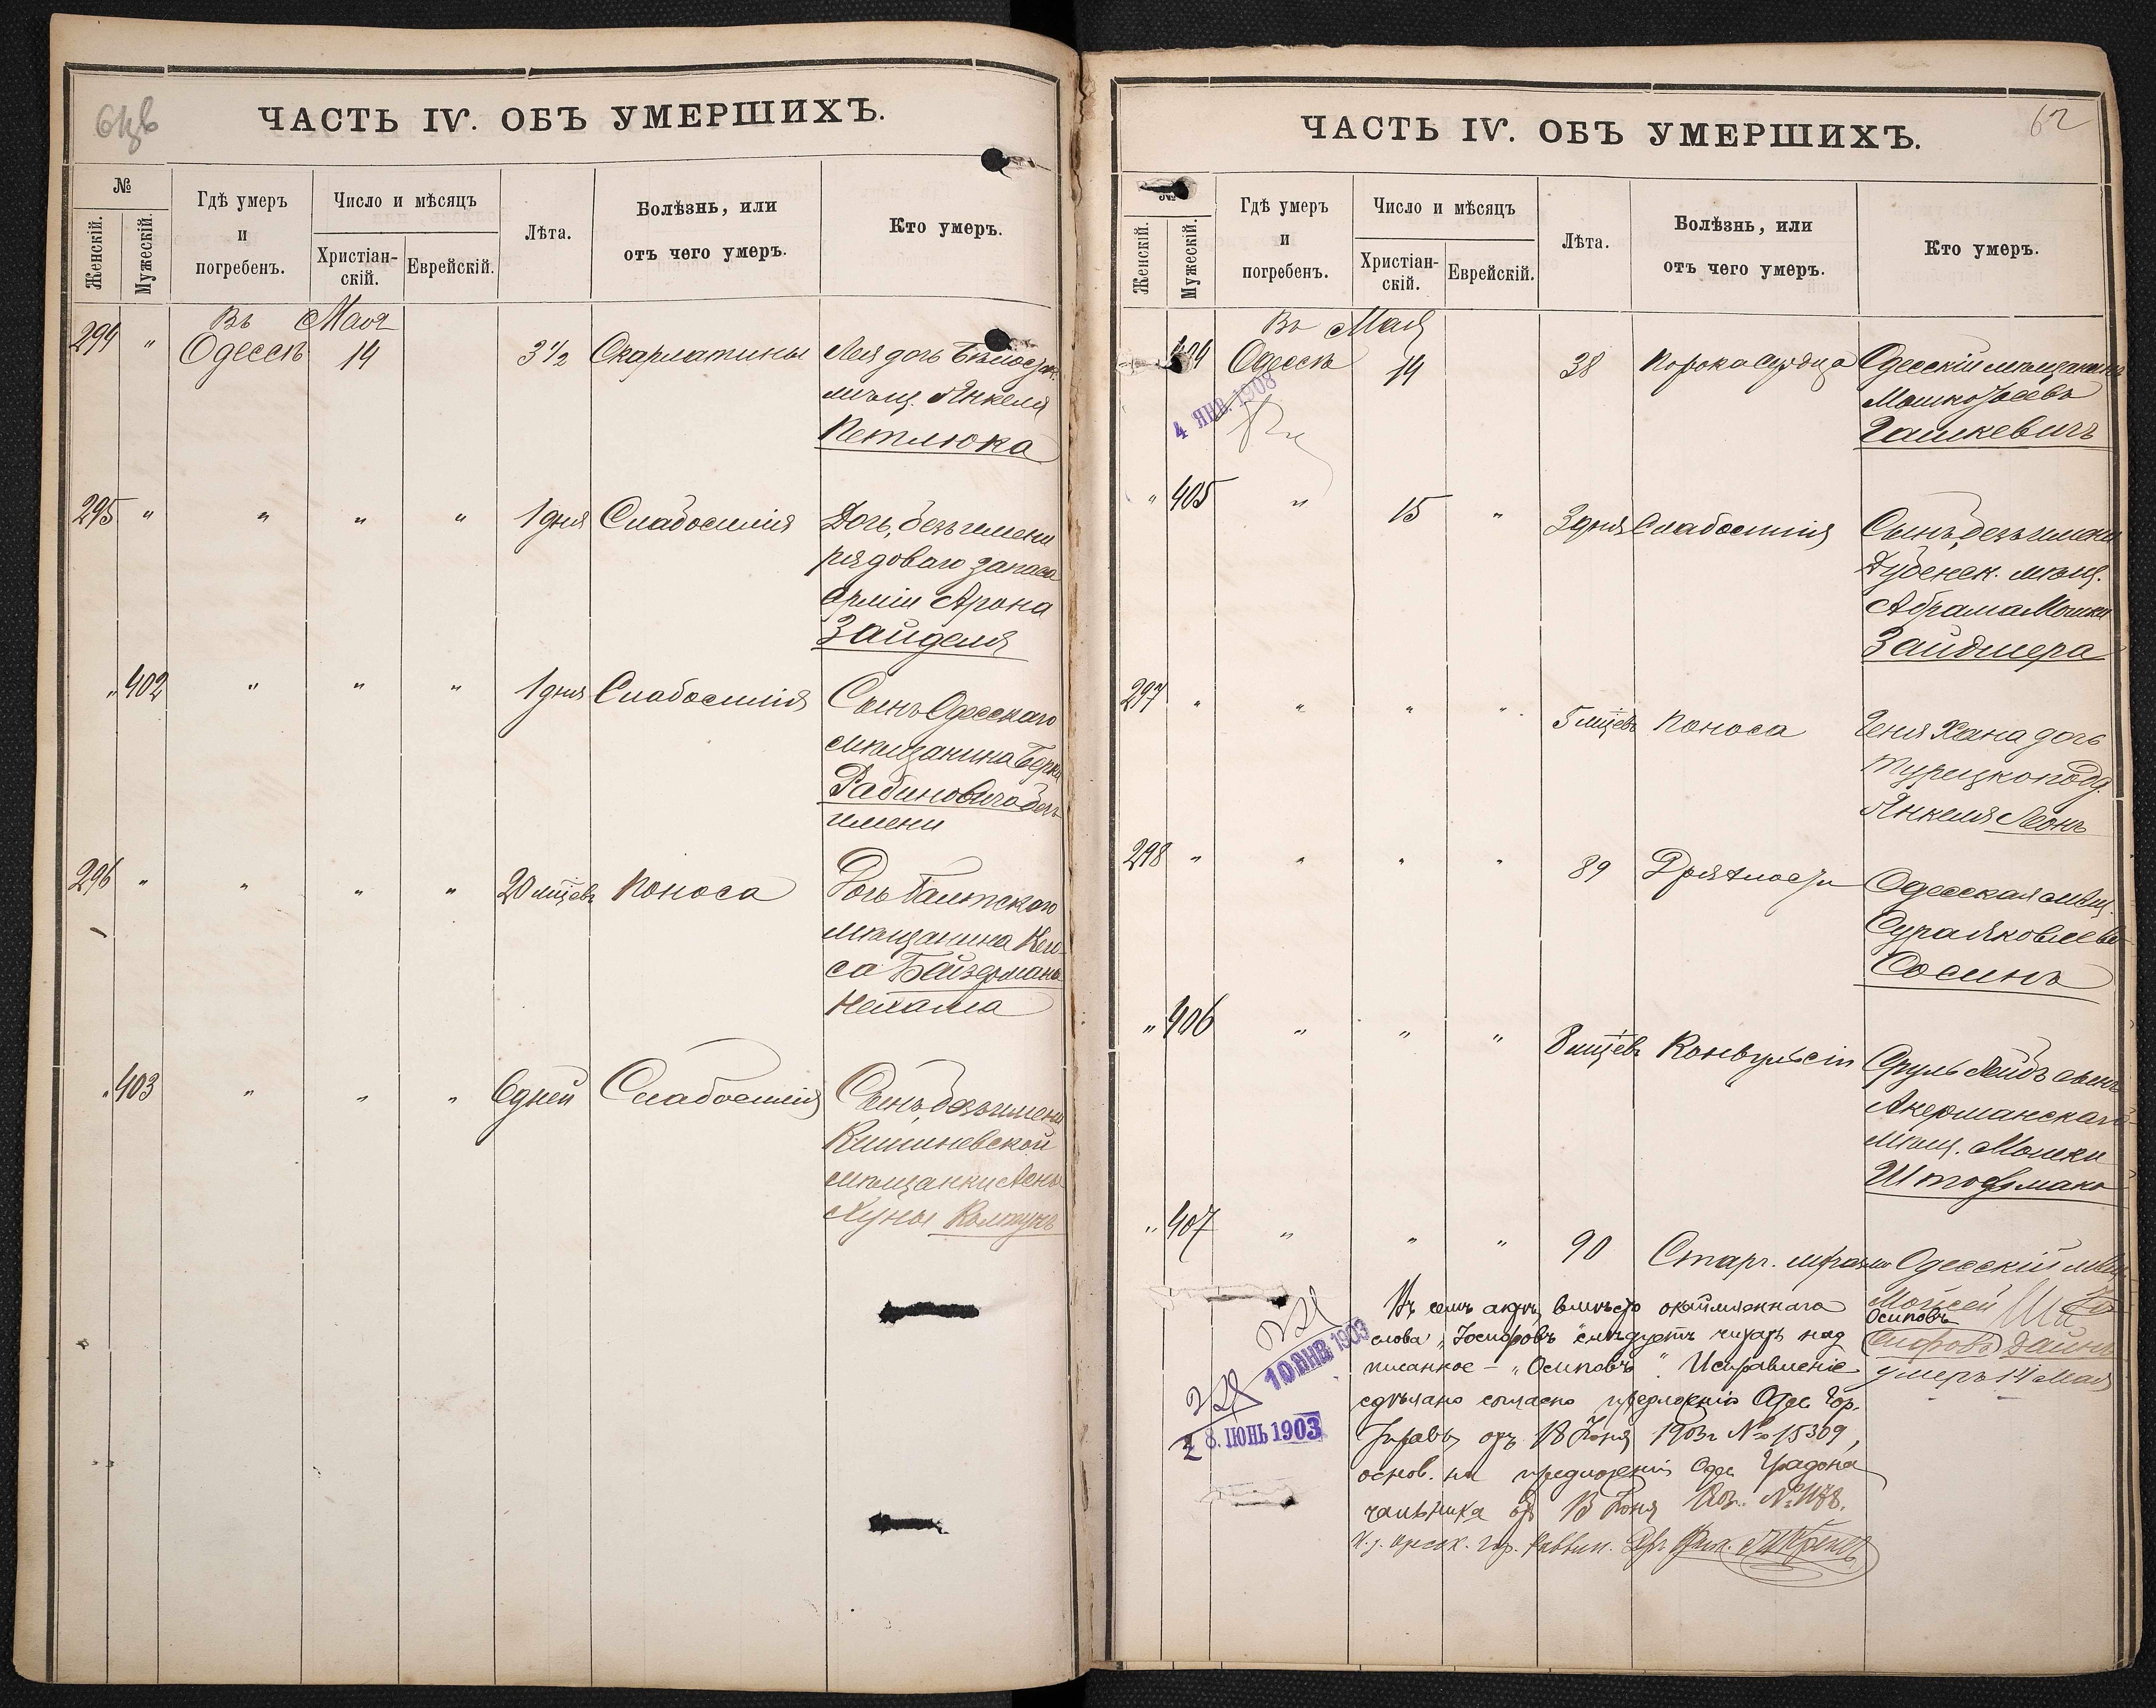 ЧАСТЬ IV. ОБЪ УМЕРШИХЪ.
№
Женскій.
Мужескій.
Гдѣ умеръ
и
погребенъ.
Число и мѣсяцъ
Христіан-
скій.
Еврейскій.
Лѣта.
Болѣзнь, или
отъ чего умеръ.
Кто умеръ.
Въ Мая
294 " Одессѣ 14 3½ Скарлатины Лея дочь
мѣщ. Янкеля
Петлюка
295 " " " " 1 дня Слабосилія Дочь, безъ имени
рядоваго запаса
арміи Арона
Зайделя
" 402 " " " 1 дня Слабосилія Сынъ Одесскаго
мѣщанина Берки
Рабиновича безъ
имени
296 " " " " 20 мцевъ Поноса Дочь Балтскаго
мѣщанина
са Байзермана
Нехама
" 403 " " " 6 дней Слабосилія Сынъ, безъ имени
Кишиневской
мѣщанки
Хуны Колтунъ
ЧАСТЬ IV. ОБЪ УМЕРШИХЪ.
62
№
Женскій.
Мужескій.
Гдѣ умеръ
и
погребенъ.
Число и мѣсяцъ
Христіан-
скій.
Еврейскій.
Лѣта.
Болѣзнь, или
отъ чего умеръ.
Кто умеръ.
Въ Мая
404 Одессѣ 14 38 Порока сердца Одесскій мѣщанинъ
Мошко
Гашкевичъ
4 ЯНВ. 1908
" 405 " 15 " 3 дня Слабосилія Сынъ, безъ имени
Дубенск. мѣщ.
Абрама Мошки
Зайдмера
297 " " " " 5 мцевъ Поноса Геня Хана дочь
турецкопод.
Янкеля Леонъ
298 " " " " 89 Дряхлости Одесская мѣщ.
Сура Яковлева
Сосинъ
" 406 " " " 8 мцевъ Конвульсіи Сруль Лейбъ сынъ
Акерманскаго
мѣщ. Мошки
Штофмана
" 407 " " " 90 Стар. Одесскій мѣщ.
Мойсей
Осиповъ
Дайнъ
умеръ 14 Мая
Въ семъ актѣ, вмѣсто окаймленнаго
слова „Іосифовъ" слѣдуетъ читать над
писанное — „Осиповъ". Исправленіе
сдѣлано согласно предложенію Одес. Гор.
Управы отъ 18 Іюня 1903 г. № 15309,
основ. на предложеніи Одес. Градона
чальника отъ 13 Іюня 1903 г.
И. д. Одесск. гор. Раввин.
10 ЯНВ 1903
28. ІЮНЬ 1903